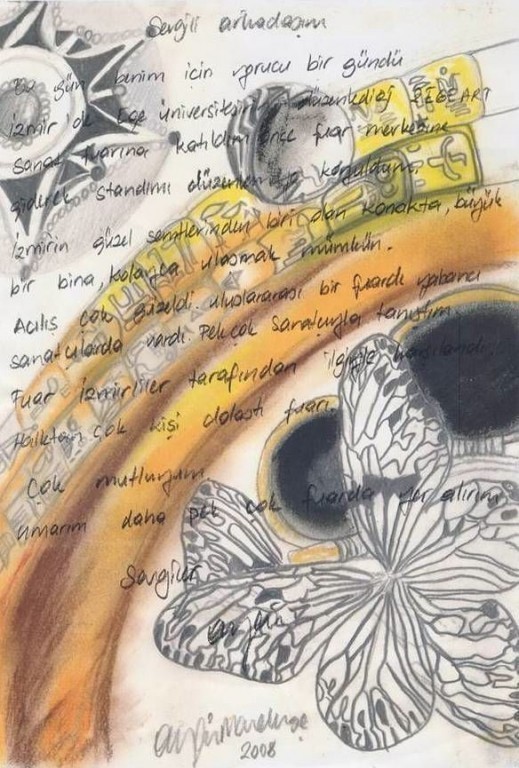 Sevgili arkadaşım
Bu gün benim için yorucu bir gündü
İzmir'de Ege üniversitesinin düzenlediği EGEART
sanat fuarına katıldım önce fuar merkezine
giderek standımı düzenlemeye koyuldum.
İzmirin güzel semtlerinden biri olan konakta, büyük
bir bina, kolayca ulaşmak mümkün.
Açılış çok güzeldi. uluslararası bir fuardı yabancı
sanatçılarda vardı. Pek çok sanatçıyla tanıştım
Fuar İzmirliler tarafından ilgiyle karşılandı.
Halktan çok kişi dolaştı fuarı.
Çok mutluyum
umarım daha pek çok fuarda yer alırım
Sevgiler
2008